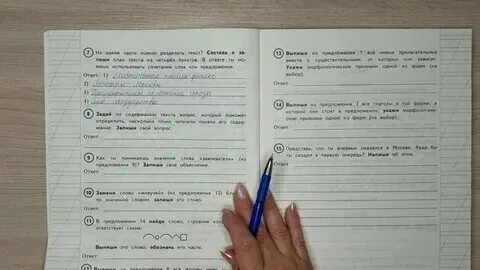 7 На какие части можно разделить текст? Составь и за-
пиши план текста из четырёх пунктов. В ответе ты мо-
жешь использовать сочетания слов или предложения.
Ответ. 1)
2) Москвы
3)
4)
8 Задай по содержанию текста вопрос, который поможет
определить, насколько точно читатели поняли его содер-
жание. Запиши свой вопрос.
Ответ.
9 Как ты понимаешь значение слова «завоеватели» (из
предложения 9)? Запиши своё объяснение.
Ответ.
10 Замени слово «живучей» (из предложения 12)
по значению словом, запиши это слово.
Ответ.
11 В предложении 14 найди слово, строение
ответствует схеме:
Выпиши это слово, обозначь его части.
Ответ.
12
13 Выпиши из предложения 1 все имена прилагательные
вместе с существительными, от которых они зависят.
Укажи морфологические признаки одной из форм (на
выбор).
Ответ.
14 Выпиши из предложения 3 все глаголы в той форме, в
которой они стоят в предложении, укажи морфологиче-
ские признаки одной из форм (на выбор).
Ответ.
15 Представь, что ты впервые оказался в Москве. Куда бы
ты сходил в первую очередь? Напиши об этом.
Ответ.